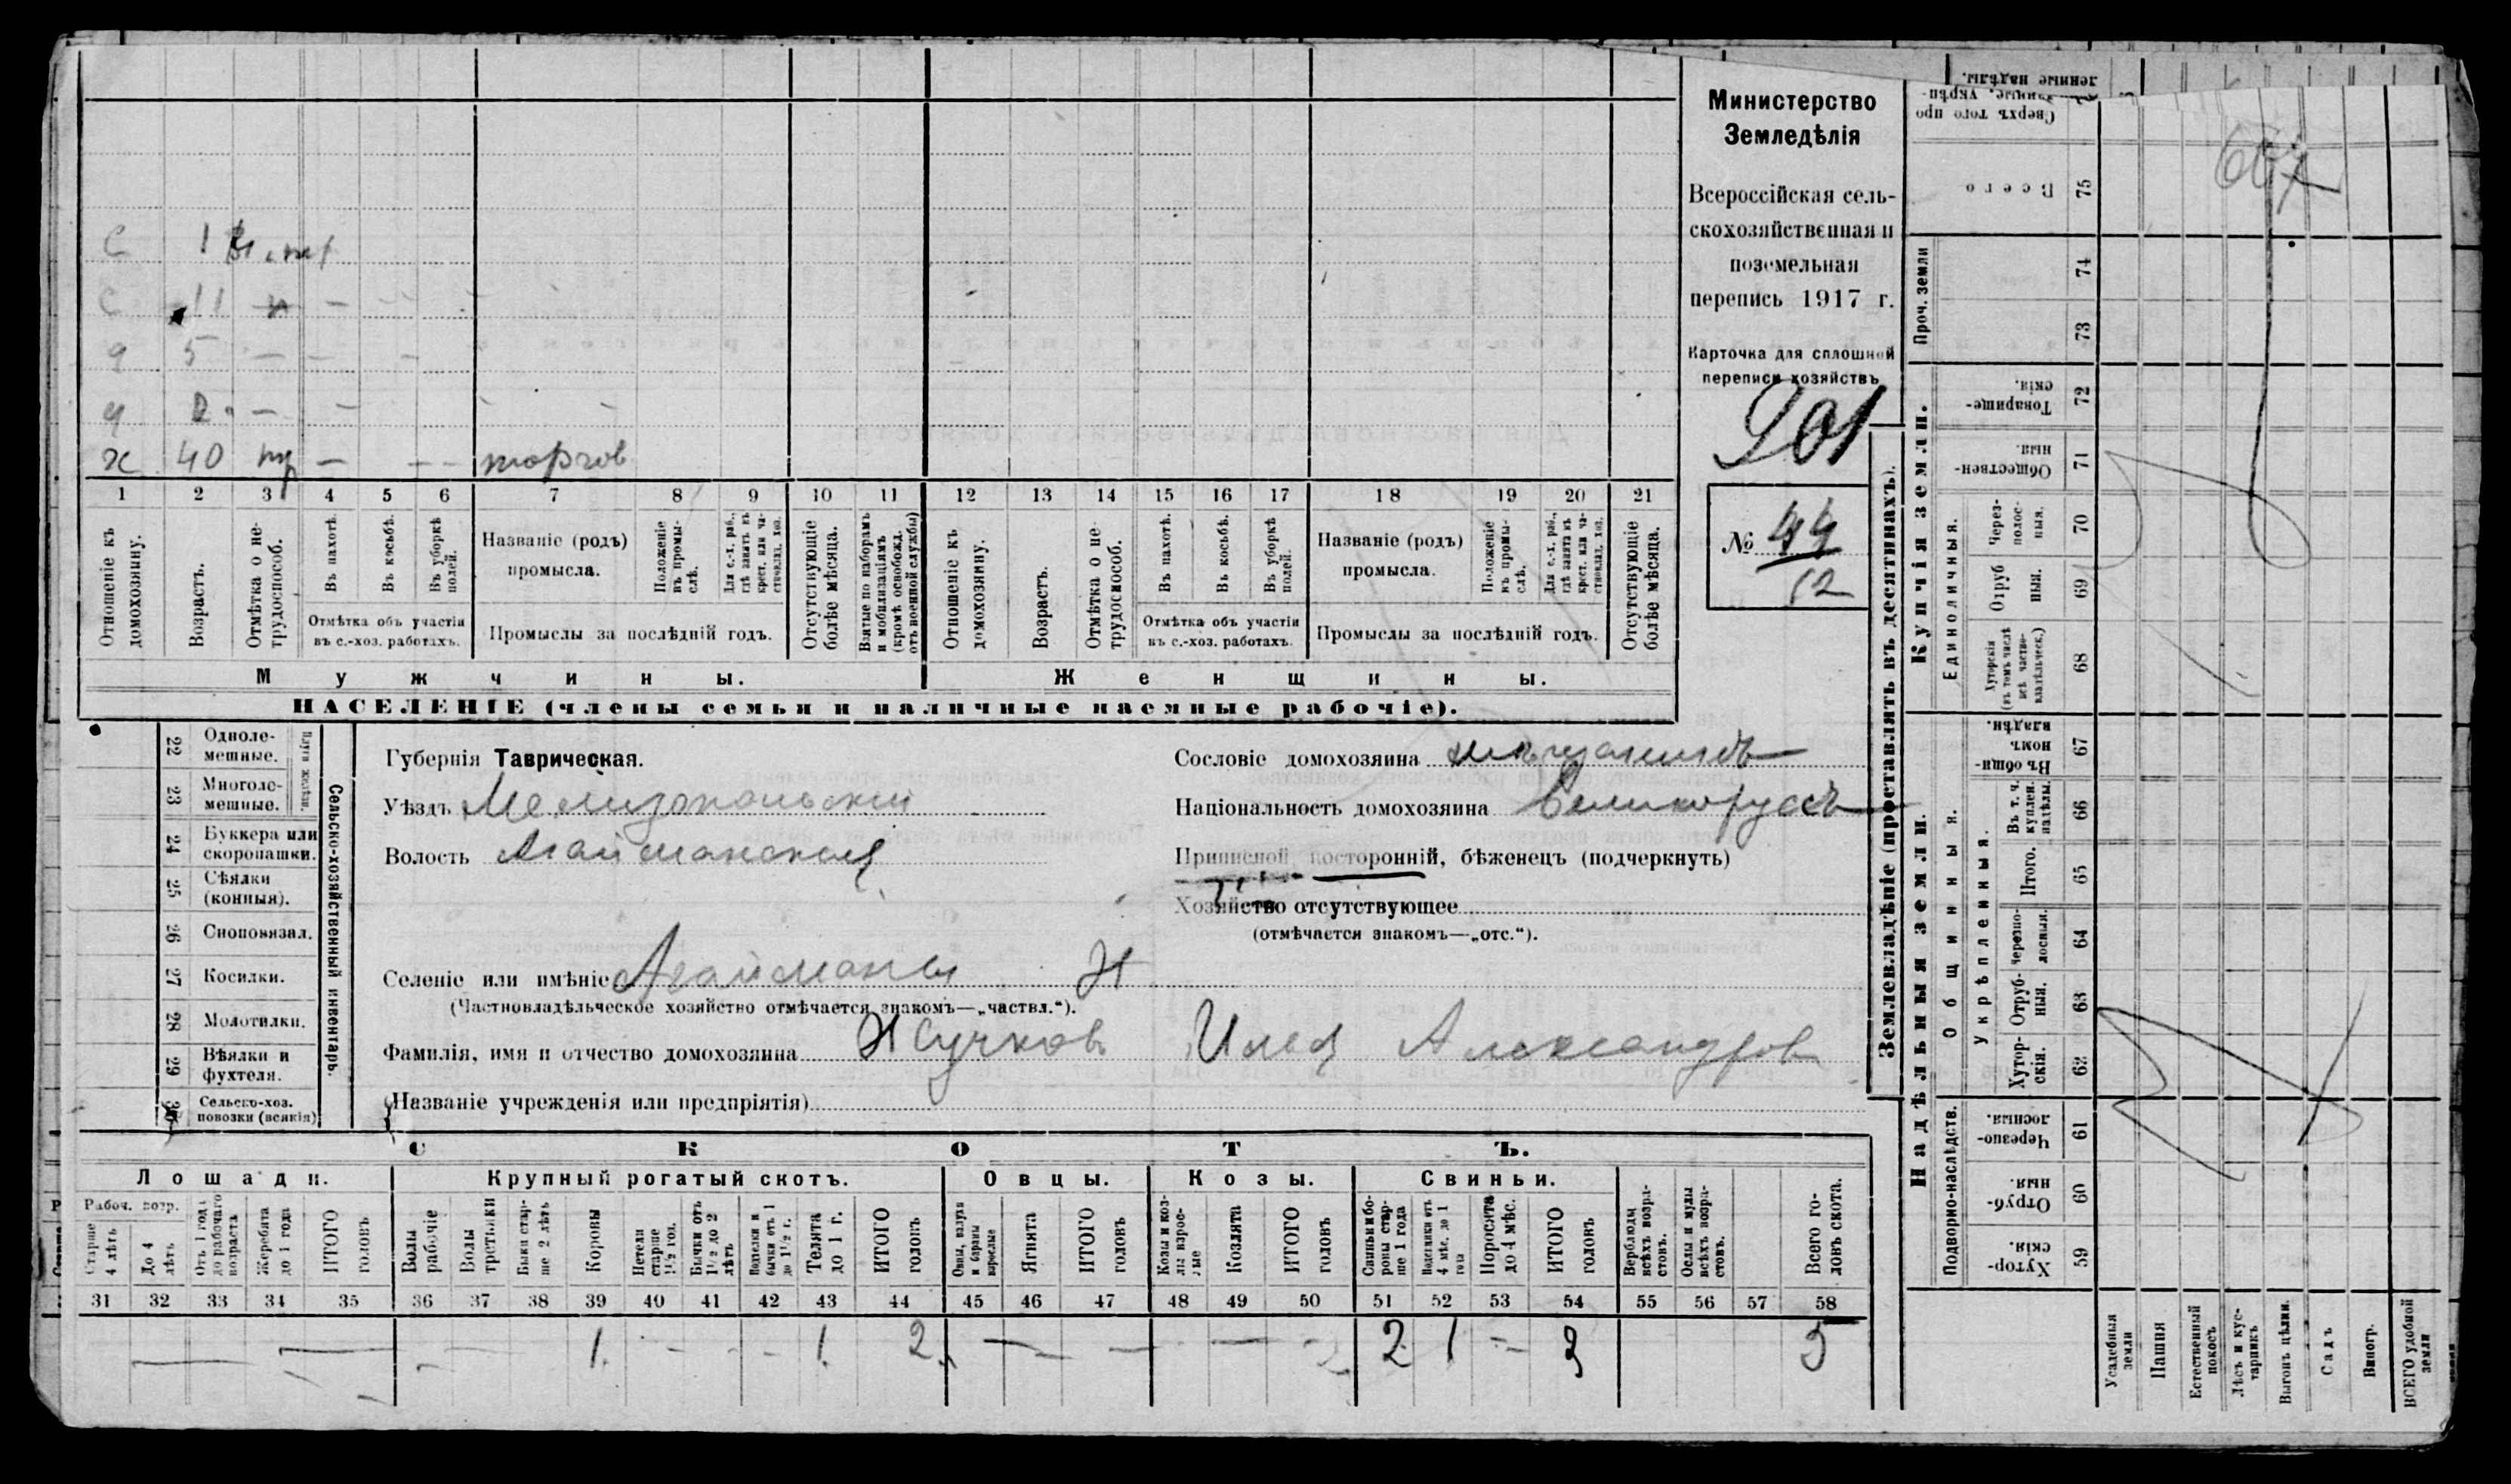 Министерство
Земледѣлія
Всероссійская сель-
скохозяйственная и
поземельная
перепись 1917 г.
Карточка для сплошной
переписи хозяйствъ
201
№ 44
12
С 1
С 11
ч 5 — — —
ч 2 — —
х 40 — — — торгов
1 2 3 4 5 6 7 8 9 10 11 12 13 14 15 16 17 18 19 20 21
Отношеніе къ домохозяину.
Возрастъ.
Отмѣтка о не-трудоспособ.
Въ пахотѣ.
Въ косьбѣ.
Въ уборкѣ полей.
Отмѣтка объ участіи
въ с.-хоз. работахъ.
Названіе (родъ)
промысла.
Положеніе въ промы-слѣ.
Для с.-х. раб., гдѣ занятъ въ крест. или ча-стновлад. хоз.
Промыслы за послѣдній годъ.
Отсутствующіе болѣе мѣсяца.
Взятые по наборамъ и мобилизаціямъ (кромѣ освобожд. отъ военной службы)
Отношеніе къ домохозяину.
Возрастъ.
Отмѣтка о не-трудоспособ.
Въ пахотѣ.
Въ косьбѣ.
Въ уборкѣ полей.
Отмѣтка объ участіи
въ с.-хоз. работахъ.
Названіе (родъ)
промысла.
Положеніе въ промы-слѣ.
Для с.-х. раб., гдѣ занятъ въ крест. или ча-стновлад. хоз.
Промыслы за послѣдній годъ.
Отсутствующіе болѣе мѣсяца.
Мужчины.
Женщины.
НАСЕЛЕНІЕ (члены семьи и наличные наемные рабочіе).
22 Одноле-мешные.
23 Многоле-мешные.
Плуги желѣзн.
24 Буккера или скоропашки.
25 Сѣялки (конныя).
26 Сноповязал.
27 Косилки.
28 Молотилки.
29 Вѣялки и фухтеля.
30 Сельско-хоз. повозки (всякія)
Сельско-хозяйственный инвентарь.
Губернія Таврическая.
Уѣздъ Мелитопольскій
Волость Агайманская
Селеніе или имѣніе Агайманы Н
(Частновладѣльческое хозяйство отмѣчается знакомъ—„частвл.“).
Сословіе домохозяина мѣщанинъ
Національность домохозяина Великоруссъ
Приписной, посторонній, бѣженецъ (подчеркнуть)
Хозяйство отсутствующее
(отмѣчается знакомъ—„отс.“).
Фамилія, имя и отчество домохозяина Жучков Илья Александров
(Названіе учрежденія или предпріятія)
СКОТЪ.
Лошади.
Крупный рогатый скотъ.
Овцы.
Козы.
Свиньи.
Рабоч. возр.
Старше 4 лѣтъ
До 4 лѣтъ
Отъ 1 года до рабочаго возраста
Жеребята до 1 года
ИТОГО головъ
Волы рабочіе
Волы третьяки
Быки стар-ше 2 лѣтъ
Коровы
Нетели старше 1½ год.
Бычки отъ 1½ до 2 лѣтъ
Подтелки и бычки отъ 1 до 1½ г.
Телята до 1 г.
ИТОГО головъ
Овцы, валухи и бараны взрослые
Ягнята
ИТОГО головъ
Козы и коз-лы взрос-лые
Козлята
ИТОГО головъ
Свиньи и бо-ровы стар-ше 1 года
Подсвинки отъ 4 мѣс. до 1 года
Поросята до 4 мѣс.
ИТОГО головъ
Верблюды всѣхъ возра-стовъ.
Ослы и мулы всѣхъ возра-стовъ.
Всего го-ловъ скота.
31 32 33 34 35 36 37 38 39 40 41 42 43 44 45 46 47 48 49 50 51 52 53 54 55 56 57 58
1 1 2 2 1 3 5
Землевладѣніе (проставлять въ десятинахъ).
Сверхъ того про
Всего 75
Проч. земли
74
73
Купчія земли.
Товарище-скія. 72
Обществен-ныя. 71
Единоличныя.
Через-полос-ныя. 70
Отруб ныя. 69
Хуторскія (въ томъ числѣ всѣ частно-владѣльческ.) 68
Надѣльныя земли.
Общинныя.
Въ общин-номъ владѣн. 67
Укрѣпленныя.
Въ т. ч. куплен. надѣлы. 66
Итого. 65
Черезпо-лосныя. 64
Отруб-ныя. 63
Хутор-скія. 62
Подворно-наслѣдств.
Черезпо-лосныя. 61
Отруб-ныя. 60
Хутор-скія. 59
Усадебныя земли
Пашня
Естественный покосъ
Лѣсъ и кус-тарникъ
Выгонъ цѣлин.
Садъ
Виногр.
ВСЕГО удобной земли